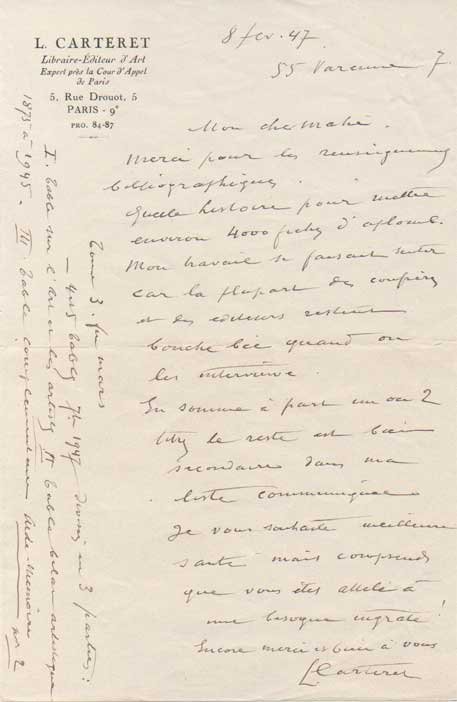 L. CARTERET
Libraire-Éditeur d'Art
Expert près la Cour d'Appel
de Paris
5, Rue Drouot, 5
PARIS - 9e
PRO. 84-87
8 fev. 47.
55 Varenne 7.
Mon cher Mahé.
Merci pour les renseignements
bibliographiques.
Quelle histoire pour mettre
environ 4000 fiches d'aplomb.
Mon travail se faisant
car la plupart des confrères
et des editeurs restent
bouche bée quand on
les interviewe.
En somme à part un ou 2
titres le reste est bien
secondaire dans ma
liste communiquée
Je vous souhaite meilleure
santé mais comprends
que vous êtes attelé à
une besogne ingrate!
Encore merci et bien à vous
L Carteret
Tome 3. fin mars
4 tables 1947 divisé en 3 parties:
I. Table sur l'art et les artistes II Table artistique
1875 à 1945. III. Table complémentaire Aide-Mémoire